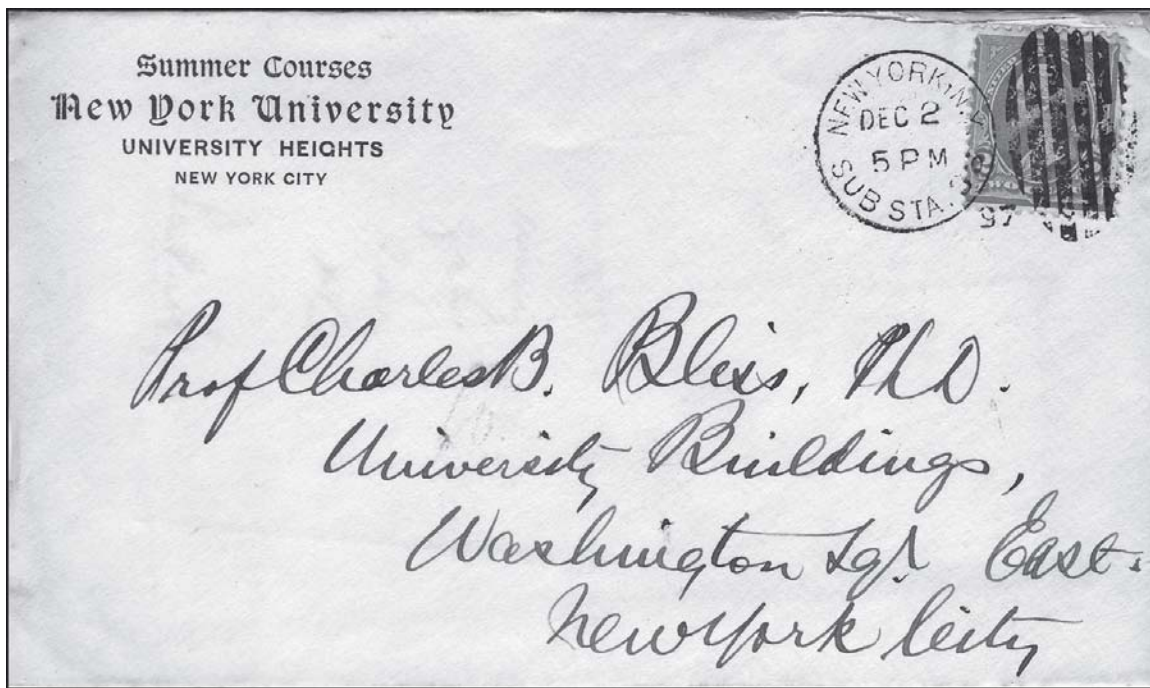 Summer Courses
New York University
UNIVERSITY HEIGHTS
NEW YORK CITY
NEW YORK, N.Y.
DEC 2
5 PM
SUB STA.
97
Prof Charles B. Bliss, Ph D.
University Buildings,
Washington Sqr. East.
New York City